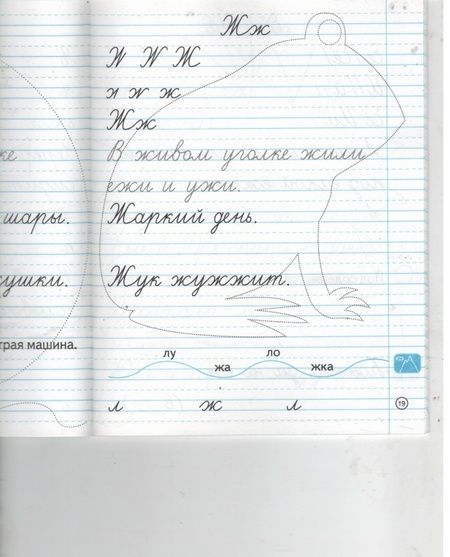 Жж
Ж Ж Ж
ж ж ж
Жж
В живом уголке жили
ежи и ужи.
шары. Жаркий день.
Жук жужжит.
трая машина.
лу ло
жа жка
л ж л
19